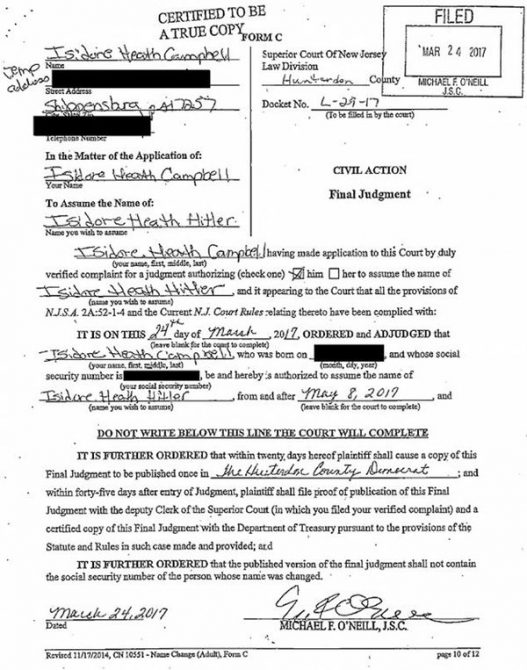 CERTIFIED TO BE
A TRUE COPY
FORM C
FILED
MAR 24 2017
MICHAEL F. O'NEILL
J.S.C.
Isidore Heath Campbell
Name
Temp address
Street Address
Shippensburg 17257
Telephone Number
Superior Court Of New Jersey
Law Division
Hunterdon County
Docket No. L-29-17
(To be filled in by the court)
In the Matter of the Application of:
Isidore Heath Campbell
Your Name
To Assume the Name of:
Isidore Heath Hitler
Name you wish to assume
CIVIL ACTION
Final Judgment
Isidore Heath Campbell having made application to this Court by duly
(your name, first, middle, last)
verified complaint for a judgment authorizing (check one) ☑ him ☐ her to assume the name of
Isidore Heath Hitler, and it appearing to the Court that all the provisions of
(name you wish to assume)
N.J.S.A. 2A:52-1-4 and the Current N.J. Court Rules relating thereto have been complied with:
IT IS ON THIS 24th day of March, 2017, ORDERED and ADJUDGED that
(leave blank for the court to complete)
Isidore Heath Campbell, who was born on , and whose social
(your name, first, middle, last) (month, day, year)
security number is , be and hereby is authorized to assume the name of
(your social security number)
Isidore Heath Hitler, from and after May 8, 2017, and
(name you wish to assume) (leave blank for the court to complete)
DO NOT WRITE BELOW THIS LINE THE COURT WILL COMPLETE
IT IS FURTHER ORDERED that within twenty days hereof plaintiff shall cause a copy of this
Final Judgment to be published once in the Hunterdon County Democrat; and
within forty-five days after entry of Judgment, plaintiff shall file proof of publication of this Final
Judgment with the deputy Clerk of the Superior Court (in which you filed your verified complaint) and a
certified copy of this Final Judgment with the Department of Treasury pursuant to the provisions of the
Statute and Rules in such case made and provided; and
IT IS FURTHER ORDERED that the published version of the final judgment shall not contain
the social security number of the person whose name was changed.
March 24, 2017
Dated
MICHAEL F. O'NEILL, J.S.C.
Revised 11/17/2014, CN 10551 - Name Change (Adult), Form C page 10 of 12